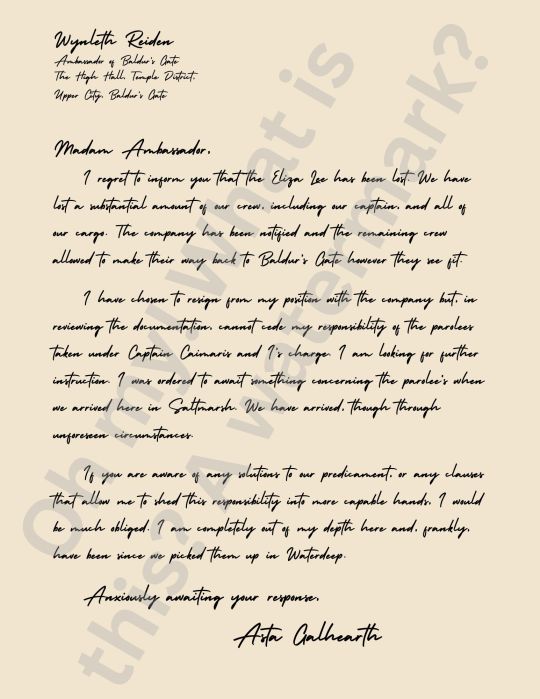 Wynleth Reiden
Ambassador of Baldur's Gate
The High Hall, Temple District,
Upper City, Baldur's Gate
Madam Ambassador,
I regret to inform you that the Eliza Lee has been lost. We have
lost a substantial amount of our crew, including our captain, and all of
our cargo. The company has been notified and the remaining crew
allowed to make their way back to Baldur's Gate however they see fit.
I have chosen to resign from my position with the company but, in
reviewing the documentation, cannot cede my responsibility of the parolees
taken under Captain Caimaris and I's charge. I am looking for further
instruction. I was ordered to await something concerning the parolee's when
we arrived here in Saltmarsh. We have arrived, though through
unforeseen circumstances.
If you are aware of any solutions to our predicament, or any clauses
that allow me to shed this responsibility into more capable hands, I would
be much obliged. I am completely out of my depth here and, frankly,
have been since we picked them up in Waterdeep.
Anxiously awaiting your response,
Asta Galhearth
Oh my! What is
this? A watermark?